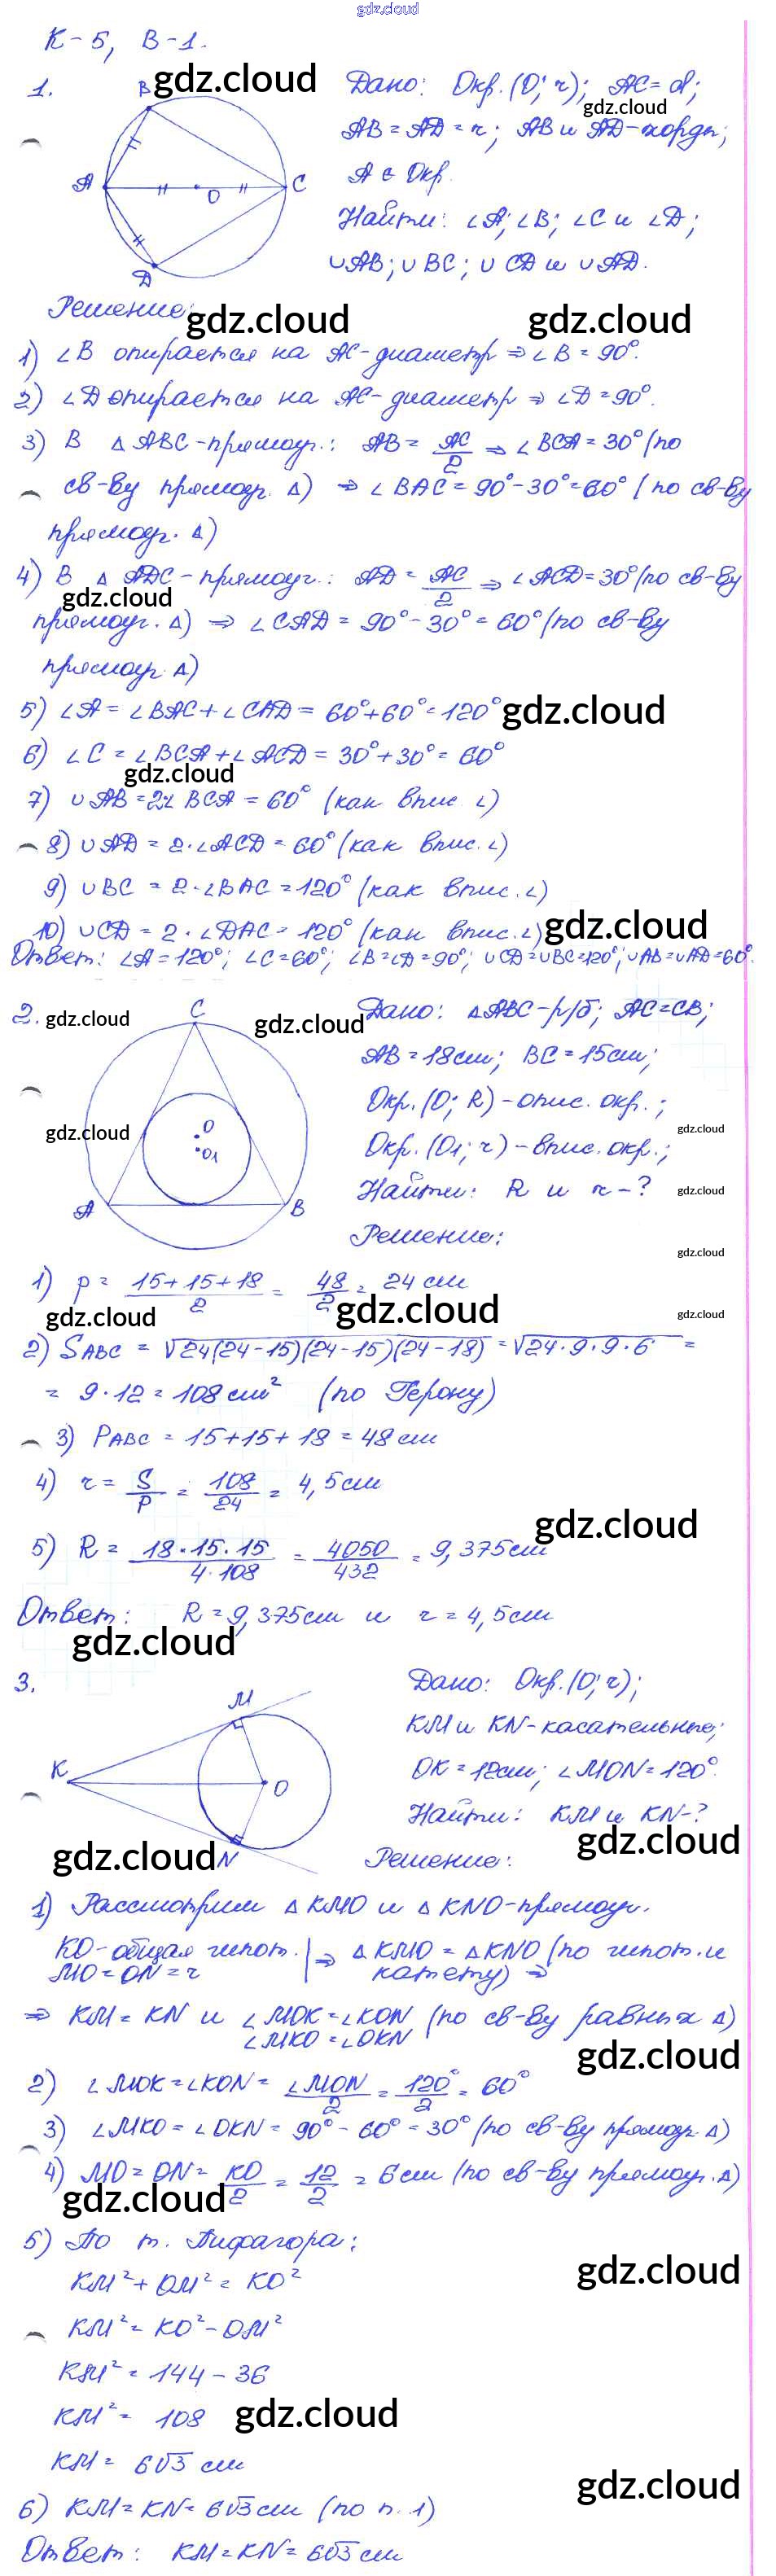 gdz.cloud
К-5, В-1.
1. B gdz.cloud Дано: Окр. (O; r); AC = d;
gdz.cloud
AB = AD = r; AB и AD - хорды;
A C O A ∈ Окр.
Найти: ∠A; ∠B; ∠C и ∠D;
D ∪AB; ∪BC; ∪CD и ∪AD.
Решение:
gdz.cloud gdz.cloud
1) ∠B опирается на AC - диаметр ⇒ ∠B = 90°.
2) ∠D опирается на AC - диаметр ⇒ ∠D = 90°.
3) В △ABC - прямоуг.: AB = AC/2 ⇒ ∠BCA = 30° (по
св-ву прямоуг. △) ⇒ ∠BAC = 90° - 30° = 60° (по св-ву
прямоуг. △)
4) В △ADC - прямоуг.: AD = AC/2 ⇒ ∠ACD = 30° (по св-ву
gdz.cloud
прямоуг. △) ⇒ ∠CAD = 90° - 30° = 60° (по св-ву
прямоуг. △)
5) ∠A = ∠BAC + ∠CAD = 60° + 60° = 120° gdz.cloud
6) ∠C = ∠BCA + ∠ACD = 30° + 30° = 60°
gdz.cloud
7) ∪AB = 2∠BCA = 60° (как впис. ∠)
8) ∪AD = 2·∠ACD = 60° (как впис. ∠)
9) ∪BC = 2·∠BAC = 120° (как впис. ∠)
10) ∪CD = 2·∠DAC = 120° (как впис. ∠) gdz.cloud
Ответ: ∠A = 120°; ∠C = 60°; ∠B = ∠D = 90°; ∪CD = ∪BC = 120°; ∪AB = ∪AD = 60°.
2. gdz.cloud C gdz.cloud Дано: △ABC - р/б; AC = CB;
AB = 18 см; BC = 15 см;
Окр. (O; R) - опис. окр.;
gdz.cloud O gdz.cloud
O1 Окр. (O1; r) - впис. окр.;
A B Найти: R и r - ? gdz.cloud
Решение:
gdz.cloud
1) p = (15+15+18)/2 = 48/2 = 24 см
gdz.cloud gdz.cloud gdz.cloud
2) SABC = √24(24-15)(24-15)(24-18) = √24·9·9·6 =
= 9·12 = 108 см² (по Герону)
3) PABC = 15+15+18 = 48 см
4) r = S/P = 108/24 = 4,5 см
gdz.cloud
5) R = 18·15·15/4·108 = 4050/432 = 9,375 см
Ответ: R = 9,375 см и r = 4,5 см
gdz.cloud
3. Дано: Окр. (O; r);
M KM и KN - касательные;
K O OK = 12 см; ∠MON = 120°.
Найти: KM и KN - ?
gdz.cloud
gdz.cloud N Решение:
1) Рассмотрим △KMO и △KNO - прямоуг.
KO - общая гипот. | ⇒ △KMO = △KNO (по гипот. и
MO = ON = r катету) ⇒
⇒ KM = KN и ∠MOK = ∠KON (по св-ву равных △)
∠MKO = ∠OKN
gdz.cloud
2) ∠MOK = ∠KON = ∠MON/2 = 120°/2 = 60°
3) ∠MKO = ∠OKN = 90° - 60° = 30° (по св-ву прямоуг. △)
4) MO = ON = KO/2 = 12/2 = 6 см (по св-ву прямоуг. △)
gdz.cloud
5) По т. Пифагора:
KM² + OM² = KO² gdz.cloud
KM² = KO² - OM²
KM² = 144 - 36
KM² = 108 gdz.cloud
KM = 6√3 см
gdz.cloud
6) KM = KN = 6√3 см (по п. 1)
Ответ: KM = KN = 6√3 см